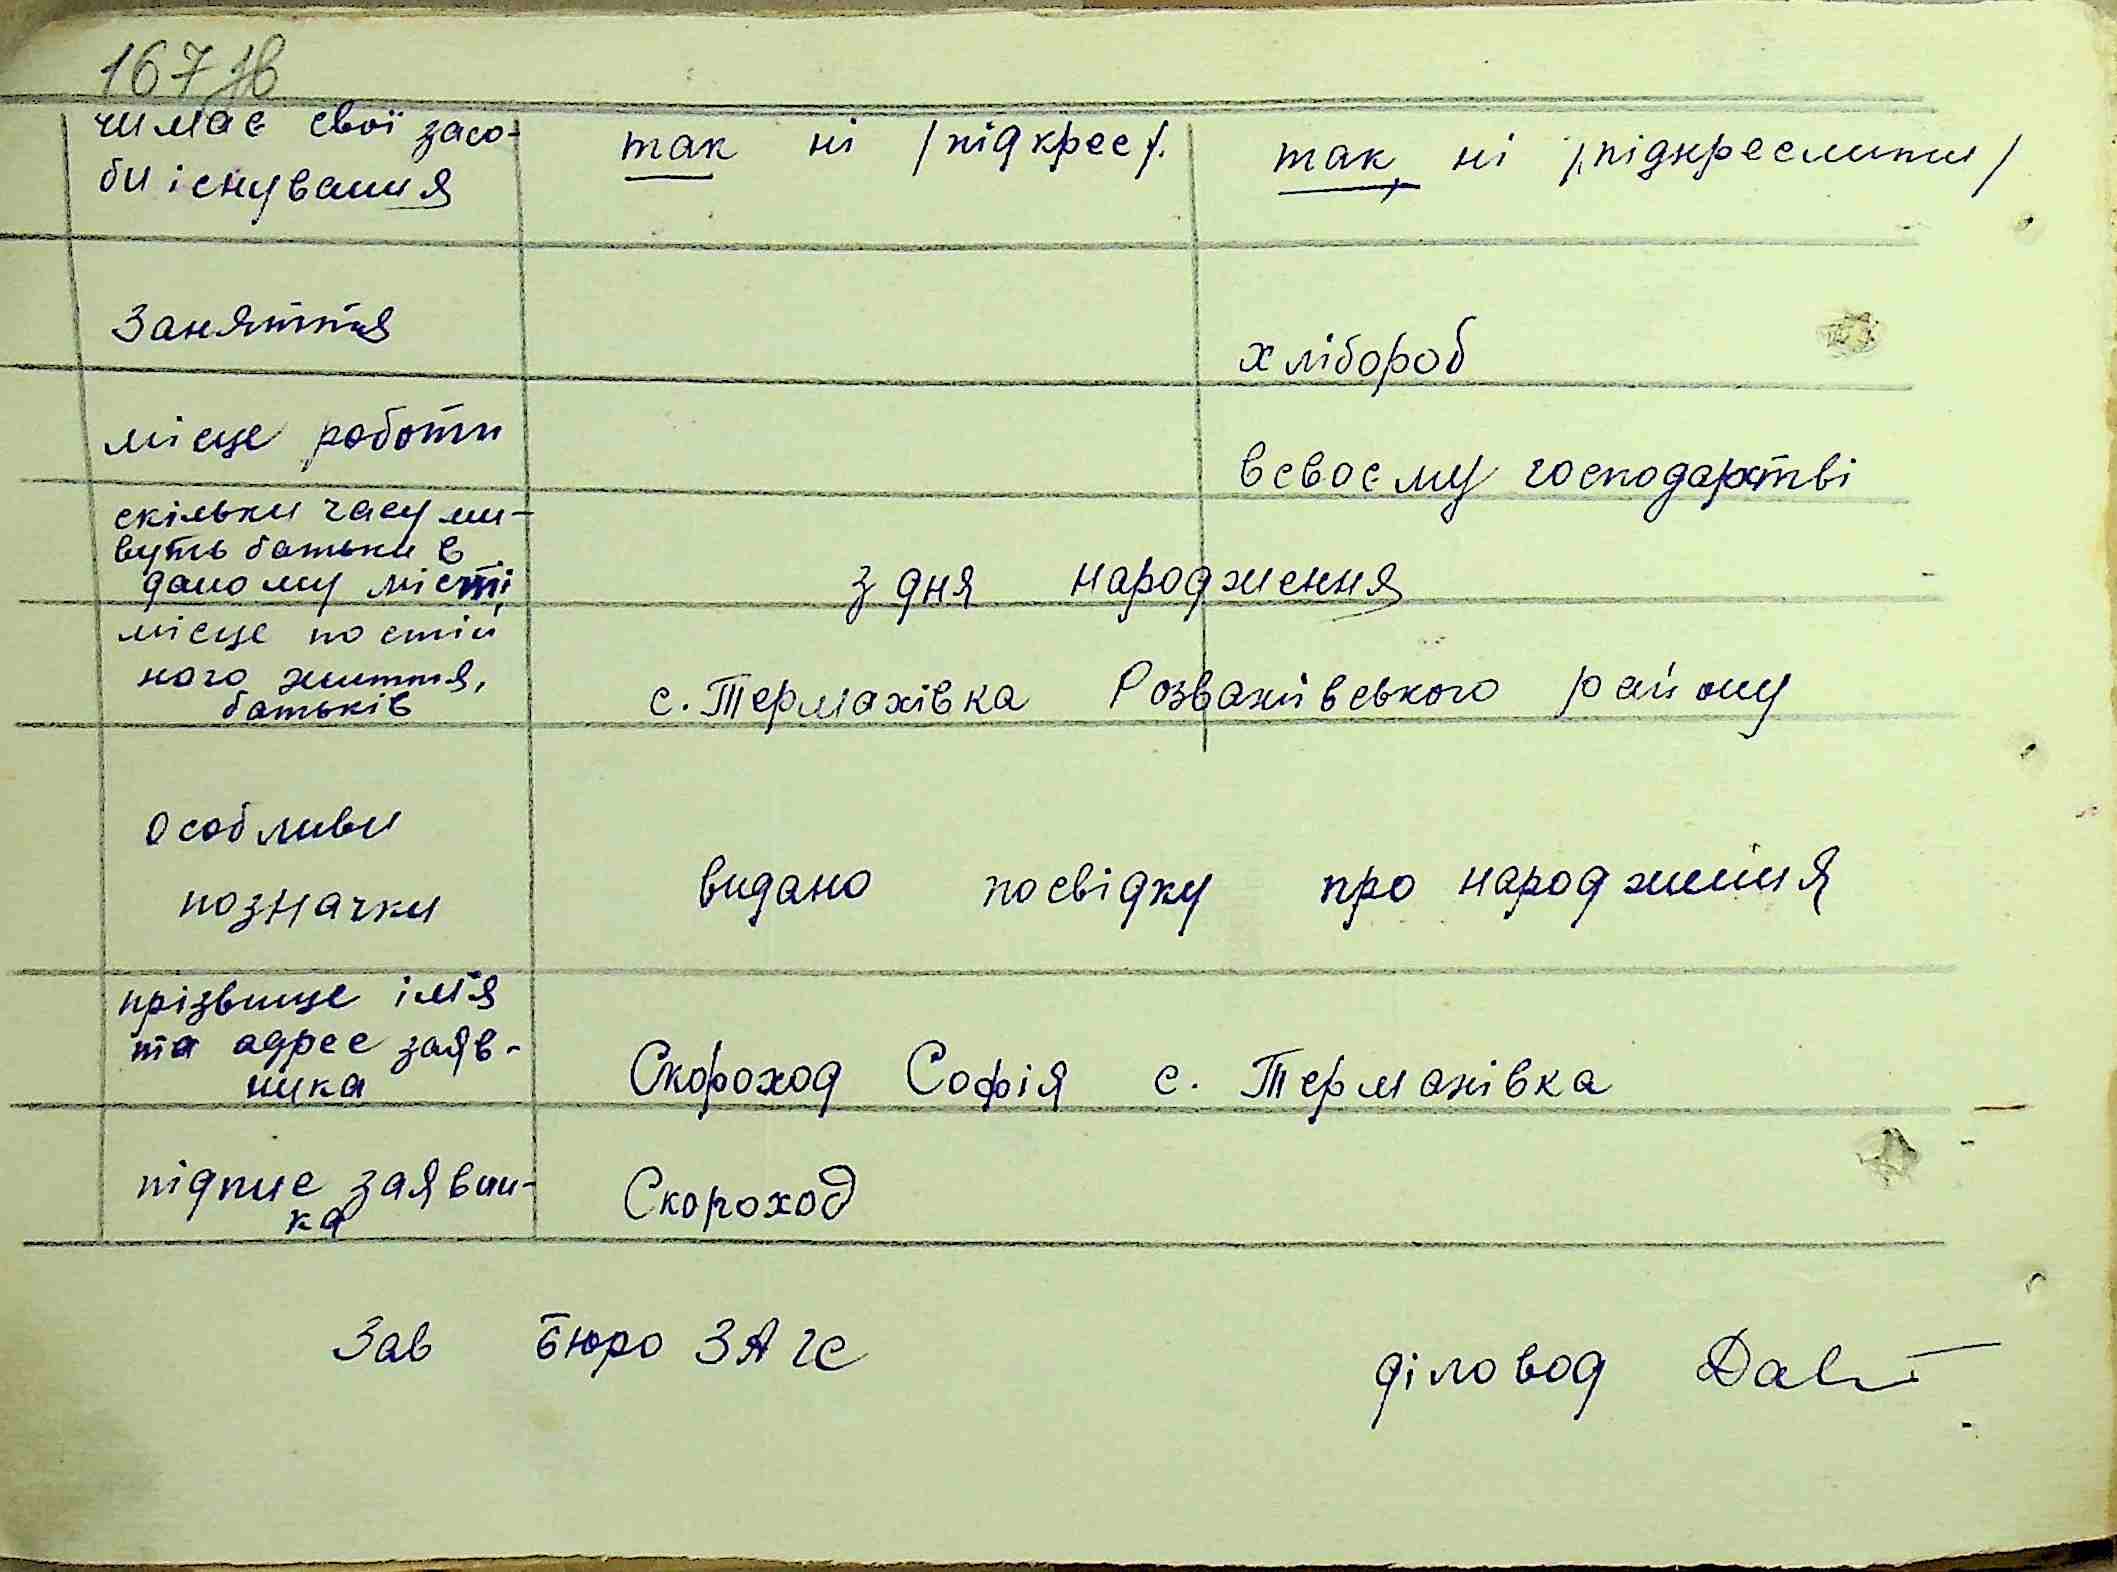 167 зв
чи має свої засо- так ні /підкрес/. так, ні /підкреслити/
би існування
Заняття хлібороб
місце роботи в своєму господарстві
скільки часу жи-
вуть батьки в
даному місті, з дня народження
місце постій
ного життя, с. Термахівка Розважівського району
батьків
Особливи
позначки видано посвідку про народження
прізвище ім'я
та адрес заяв- Скороход Софія с. Термахівка
ника
підпис заявни- Скороход
ка
Зав Бюро ЗАГС діловод